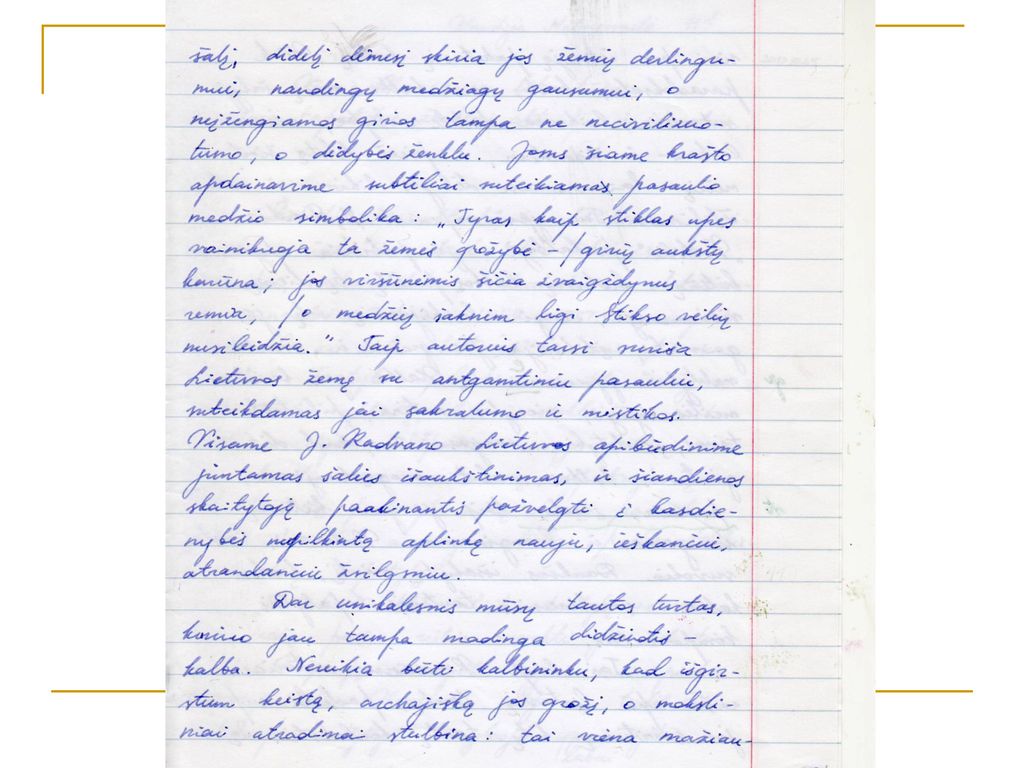 šalį, didelį dėmesį skiria jos žemių derlingu-
mui, naudingų medžiagų gausumui, o
neįžengiamos girios tampa ne necivilizuo-
tumo, o didybės ženklu. Joms šiame krašto
apdainavime subtiliai suteikiamas pasaulio
medžio simbolika: „Tyras kaip stiklas upes
vainikuoja ta žemės grožybė – / girių aukštų
karūna; jos viršūnėmis šičia žvaigždynus
remia, / o medžių šaknim ligi Stikso vėlių
nusileidžia.“ Taip autorius tarsi suriša
Lietuvos žemę su antgamtiniu pasauliu,
suteikdamas jai sakralumo ir mistikos.
Visame J. Radvano Lietuvos apibūdinime
juntamas šalies išaukštinimas, ir šiandienos
skaitytoją paakinantis pažvelgti į kasdie-
nybės nupilkintą aplinką nauju, ieškančiu,
atrandančiu žvilgsniu.
Dar unikalesnis mūsų tautos turtas,
kuriuo jau tampa madinga didžiuotis –
kalba. Nereikia būti kalbininku, kad išgir-
stum keistą, archajišką jos grožį, o moksli-
niai atradimai stulbina: tai viena mažiau-